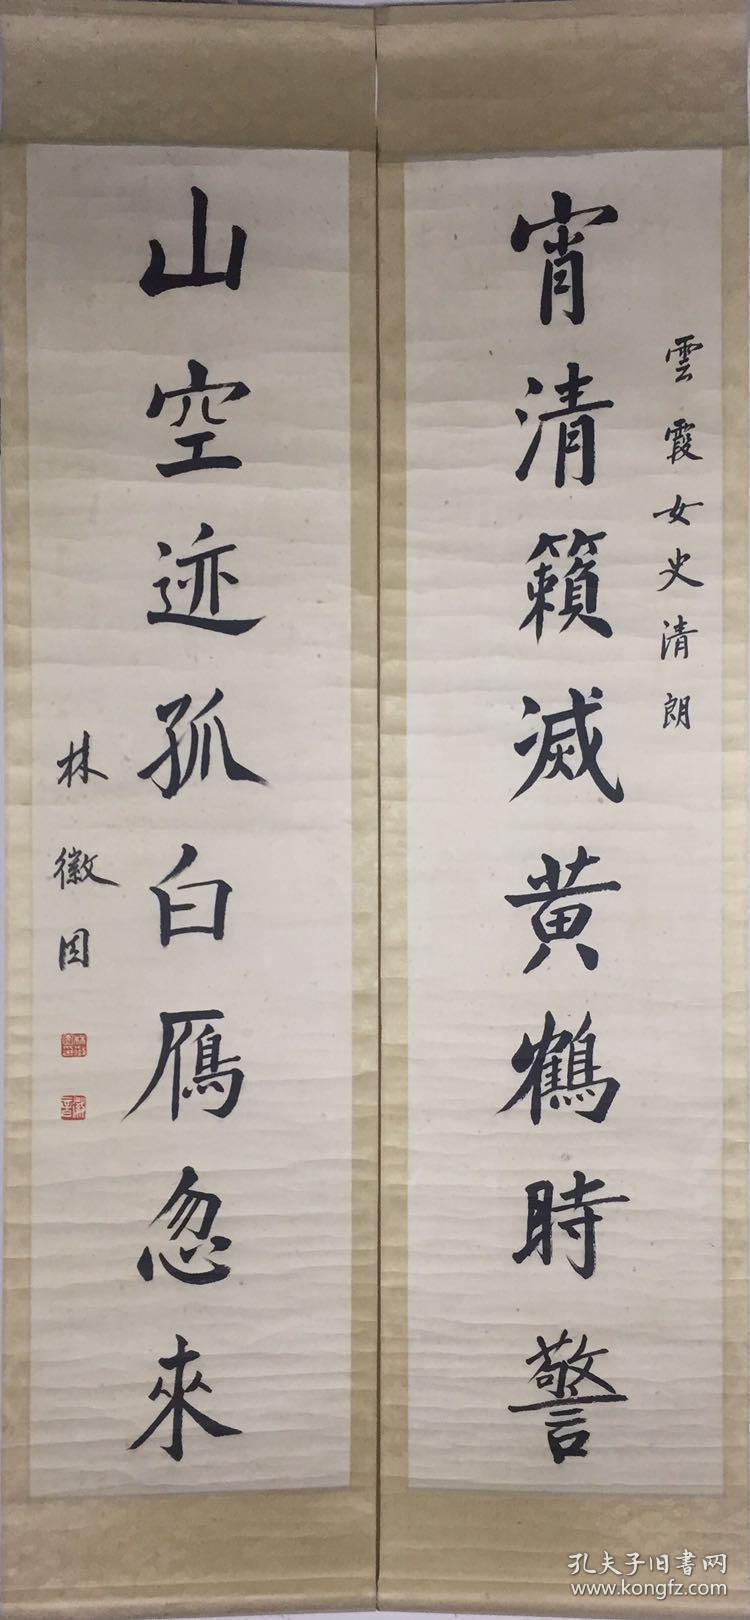 雲霞女史清朗
宵清籟滅黄鶴時警
山空迹孤白鴈忽來
林徽因
孔夫子旧書网
www.kongfz.com